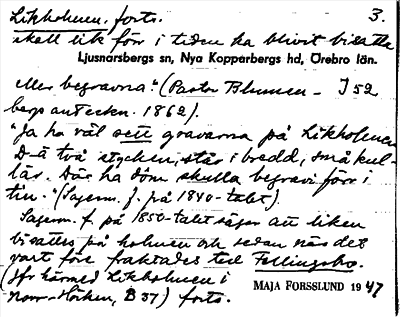 Likholmen. forts. 3.
skall lik förr i tiden ha blivit bisatta
Ljusnarsbergs sn, Nya Kopparbergs hd, Örebro län.
eller begravna." (Pastor Blumen- I 52
bergs anteckn. 1862).
"Ja ha väl sett gravarna på Likholmen
D-ä två stycken, står i bredd, små kul-
lar. Där ha döm skulla begravi förr i
tin." (Sagesm. f. på 1840-talet).
Sagesm. f. på 1850-talet säger att liken
bisattes på holmen och sedan när det
vart före fraktades till Fellingsbo.
(Jfr härmed Likholmen i
Norr-Hörken, B 37) forts.
MAJA FORSSLUND 1947